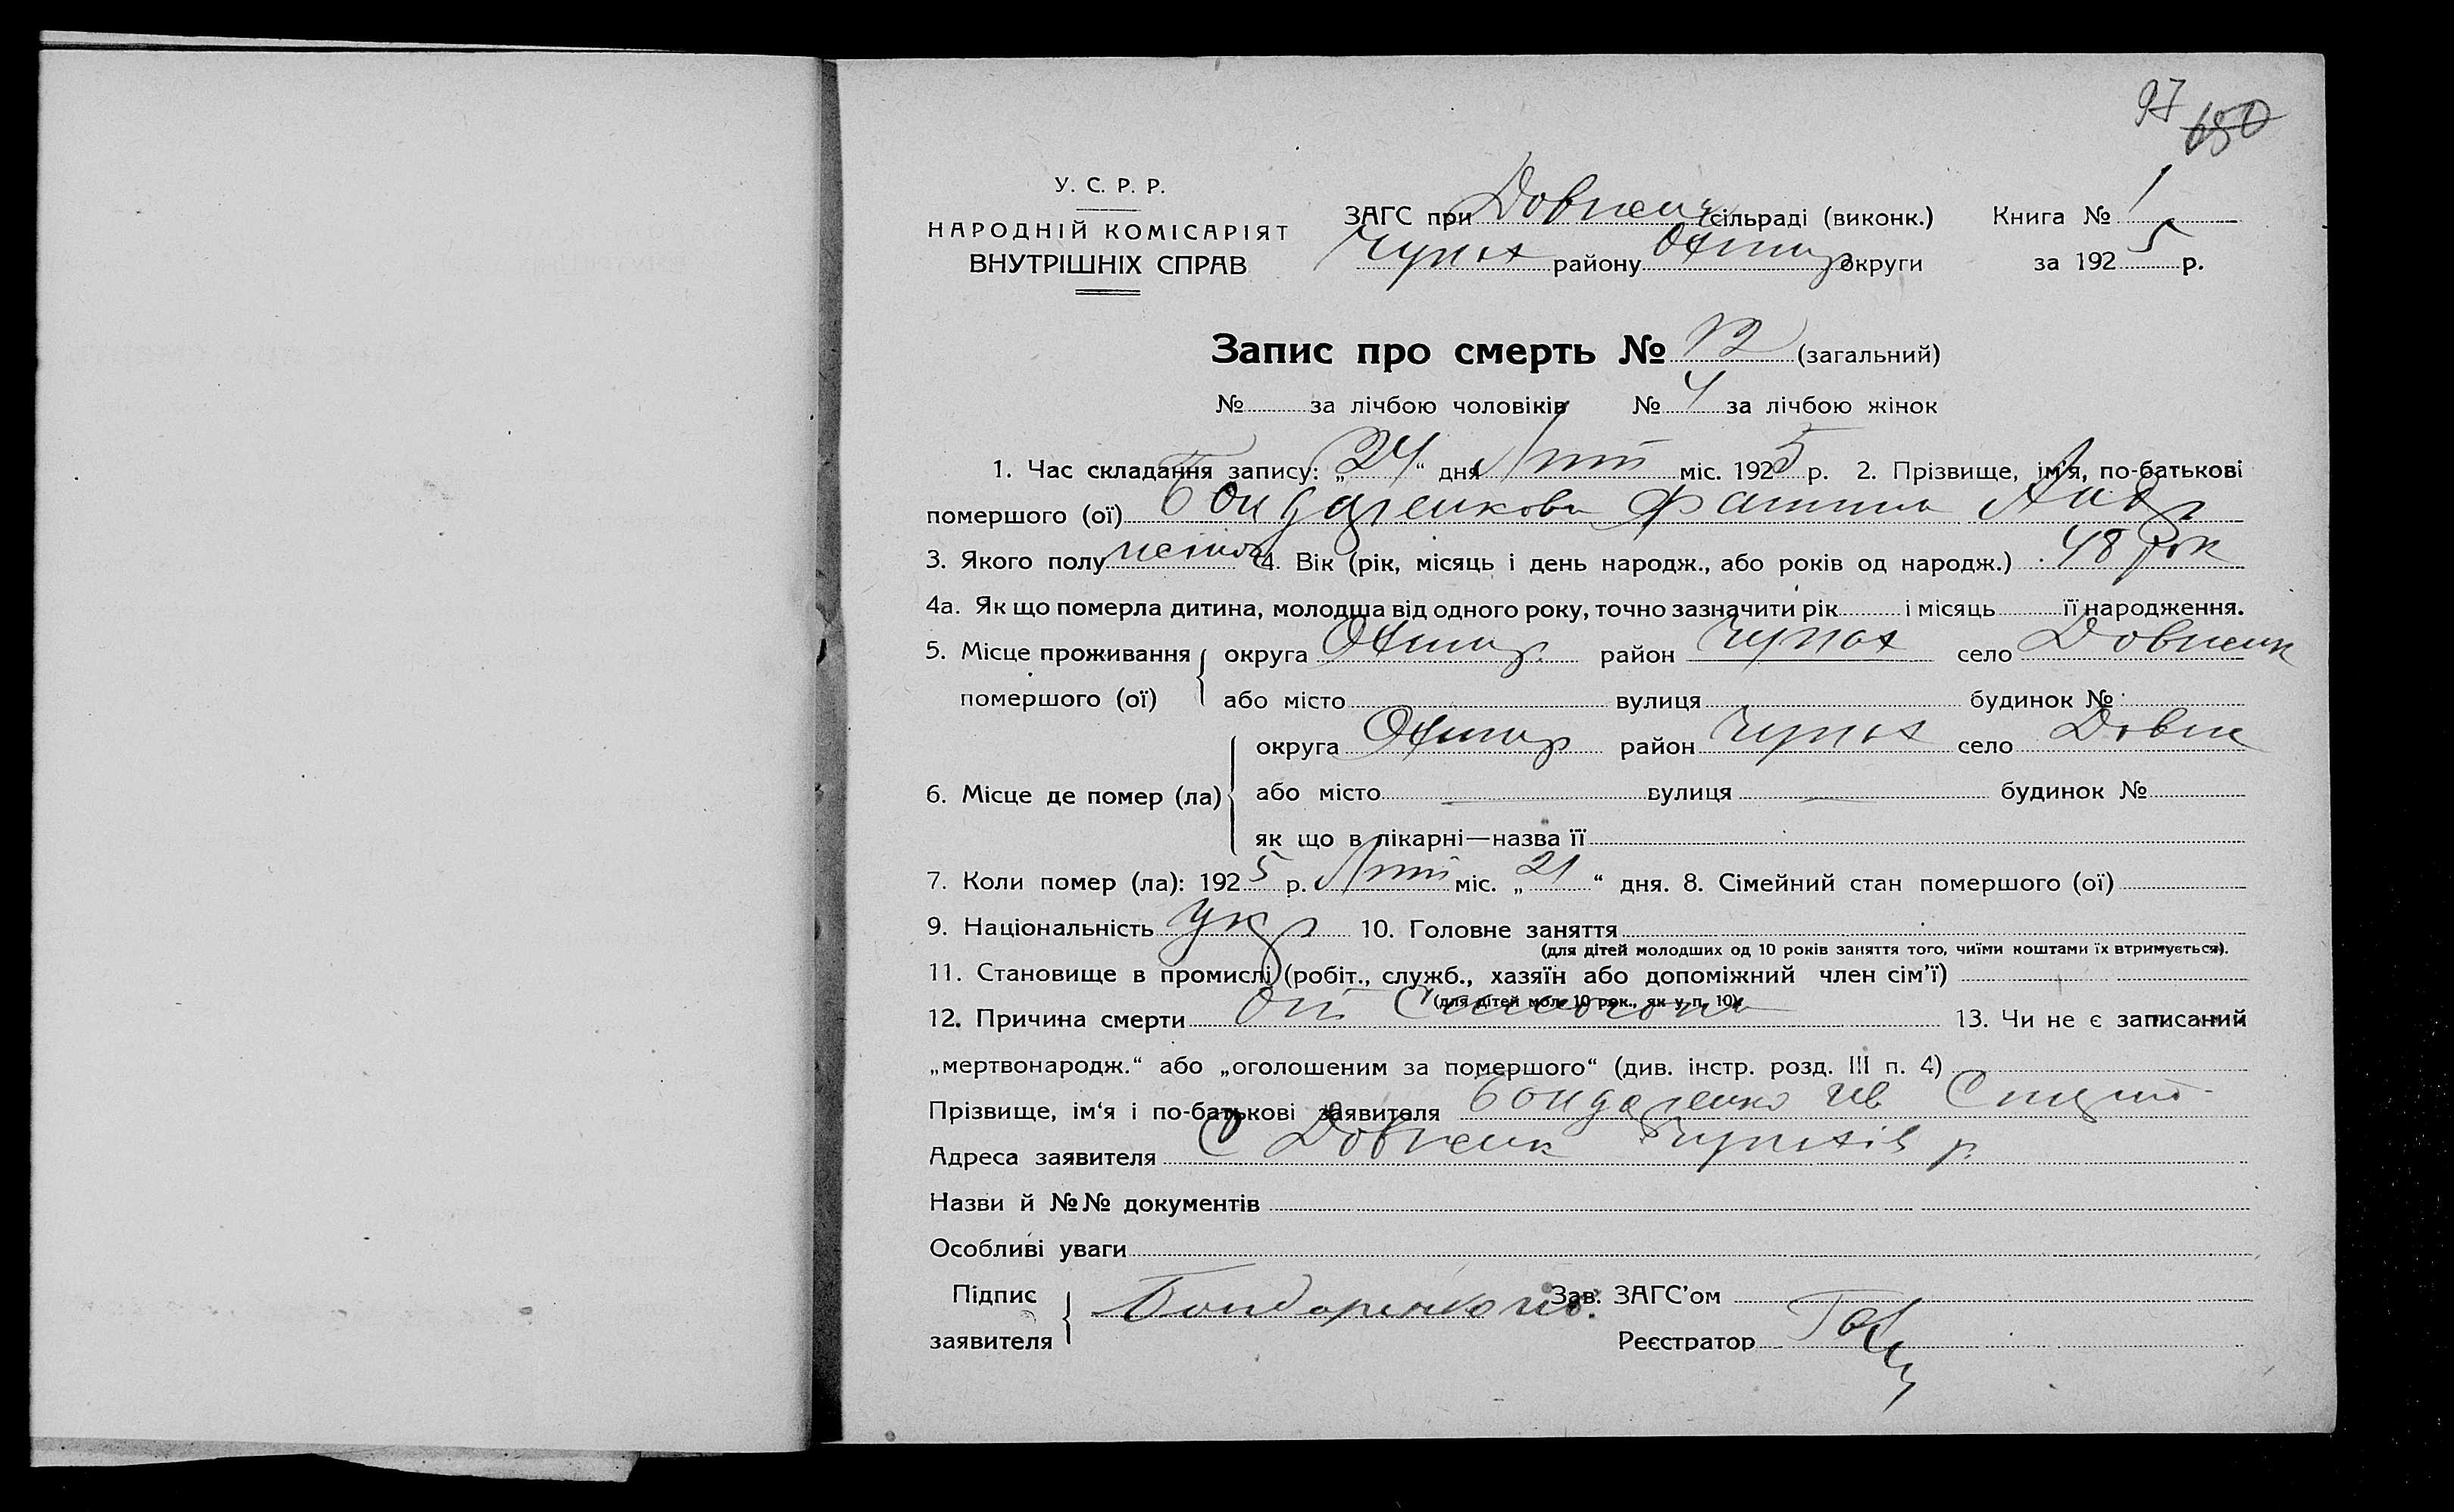 97 650
У. С. Р. Р.
НАРОДНІЙ КОМІСАРІЯТ
ВНУТРІШНІХ СПРАВ
ЗАГС при Довжен сільраді (виконк.) Книга № 1
Чупах району Охтир округи за 1925 р.
Запис про смерть № 12 (загальний)
№ за лічбою чоловіків № 4 за лічбою жінок
1. Час складання запису: „24“ дня Лют міс. 1925 р. 2. Прізвище, ім'я, по-батькові
помершого (ої) Бондаренкова Андр
3. Якого полу 4. Вік (рік, місяць і день народж., або років од народж.) 48 рок
4а. Як що померла дитина, молодша від одного року, точно зазначити рік і місяць її народження.
5. Місце проживання округа Охтир. район Чупах село Довженк
помершого (ої) або місто вулиця будинок №
округа Охтир район Чупах село Довж
6. Місце де помер (ла) або місто вулиця будинок №
як що в лікарні—назва її
7. Коли помер (ла): 1925 р. Лют міс. „21“ дня. 8. Сімейний стан помершого (ої)
9. Національність Укр 10. Головне заняття
(для дітей молодших од 10 років заняття того, чиїми коштами їх втримується).
11. Становище в промислі (робіт., служб., хазяїн або допоміжний член сім'ї)
(для дітей мол. 10 рок., як у п. 10)
12. Причина смерти От 13. Чи не є записаний
„мертвонародж.“ або „оголошеним за помершого“ (див. інстр. розд. III п. 4)
Прізвище, ім'я і по-батькові заявителя Бондаренко Ив
Адреса заявителя С Довженк Чупахів р.
Назви й №№ документів
Особливі уваги
Підпис Зав. ЗАГС'ом
заявителя Бондаренко Ив. Реєстратор